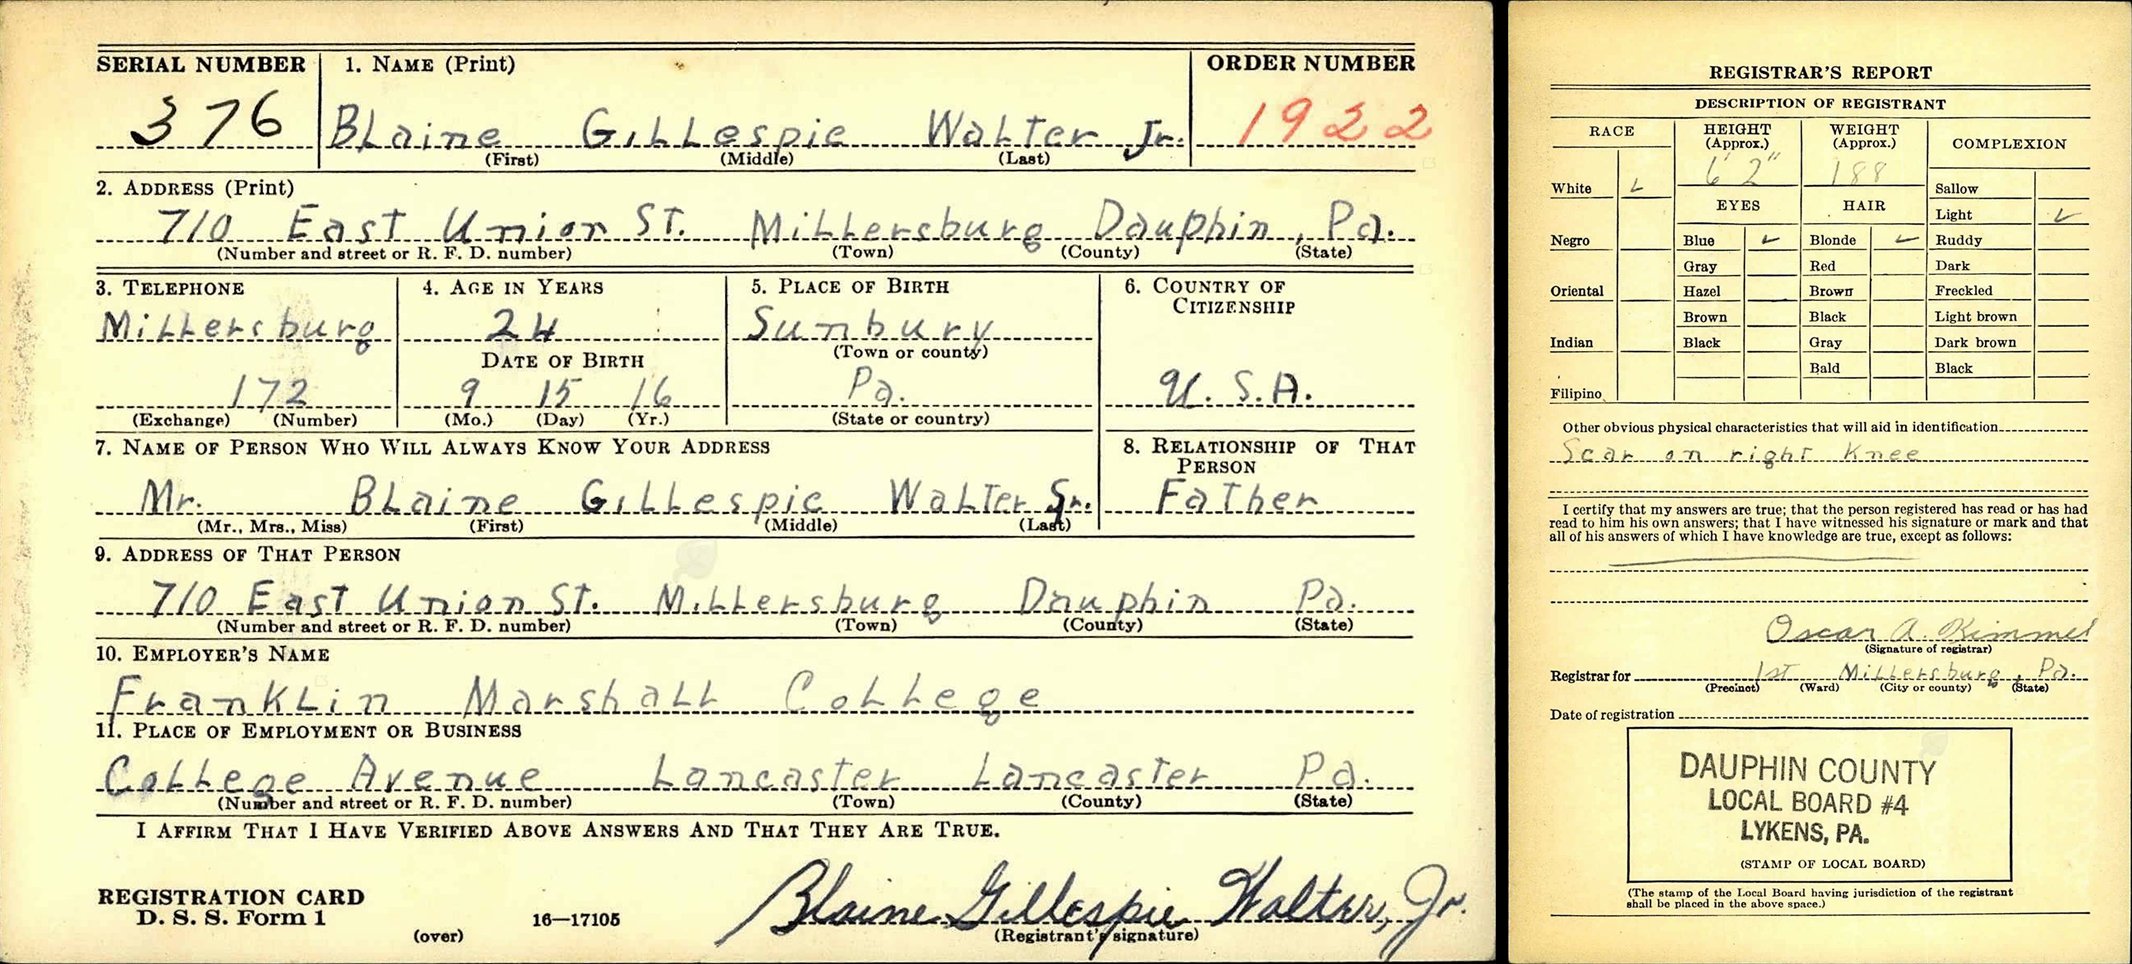 SERIAL NUMBER 1. NAME (Print) ORDER NUMBER
376 Blaine Gillespie Walter Jr. 1922
(First) (Middle) (Last)
2. ADDRESS (Print)
710 East Union St. Millersburg Dauphin, Pa.
(Number and street or R. F. D. number) (Town) (County) (State)
3. TELEPHONE 4. AGE IN YEARS 5. PLACE OF BIRTH 6. COUNTRY OF CITIZENSHIP
Millersburg 24 Sunbury
(Town or county)
DATE OF BIRTH
172 9 15 16 Pa. U.S.A.
(Exchange) (Number) (Mo.) (Day) (Yr.) (State or country)
7. NAME OF PERSON WHO WILL ALWAYS KNOW YOUR ADDRESS 8. RELATIONSHIP OF THAT PERSON
Mr. Blaine Gillespie Walter Sr. Father
(Mr., Mrs., Miss) (First) (Middle) (Last)
9. ADDRESS OF THAT PERSON
710 East Union St. Millersburg Dauphin Pa.
(Number and street or R. F. D. number) (Town) (County) (State)
10. EMPLOYER'S NAME
Franklin Marshall College
11. PLACE OF EMPLOYMENT OR BUSINESS
College Avenue Lancaster Lancaster Pa.
(Number and street or R. F. D. number) (Town) (County) (State)
I AFFIRM THAT I HAVE VERIFIED ABOVE ANSWERS AND THAT THEY ARE TRUE.
REGISTRATION CARD
D. S. S. Form 1 16—17105 Blaine Gillespie Walter, Jr.
(over) (Registrant's signature)
REGISTRAR'S REPORT
DESCRIPTION OF REGISTRANT
RACE HEIGHT (Approx.) WEIGHT (Approx.) COMPLEXION
6' 2" 188
White ✓ Sallow
EYES HAIR Light ✓
Negro Blue ✓ Blonde ✓ Ruddy
Gray Red Dark
Oriental Hazel Brown Freckled
Brown Black Light brown
Indian Black Gray Dark brown
Bald Black
Filipino
Other obvious physical characteristics that will aid in identification
Scar on right Knee
I certify that my answers are true; that the person registered has read or has had
read to him his own answers; that I have witnessed his signature or mark and that
all of his answers of which I have knowledge are true, except as follows:
Oscar A. Kimmel
(Signature of registrar)
Registrar for 1st Millersburg, Pa.
(Precinct) (Ward) (City or county) (State)
Date of registration
DAUPHIN COUNTY
LOCAL BOARD #4
LYKENS, PA.
(STAMP OF LOCAL BOARD)
(The stamp of the Local Board having jurisdiction of the registrant
shall be placed in the above space.)